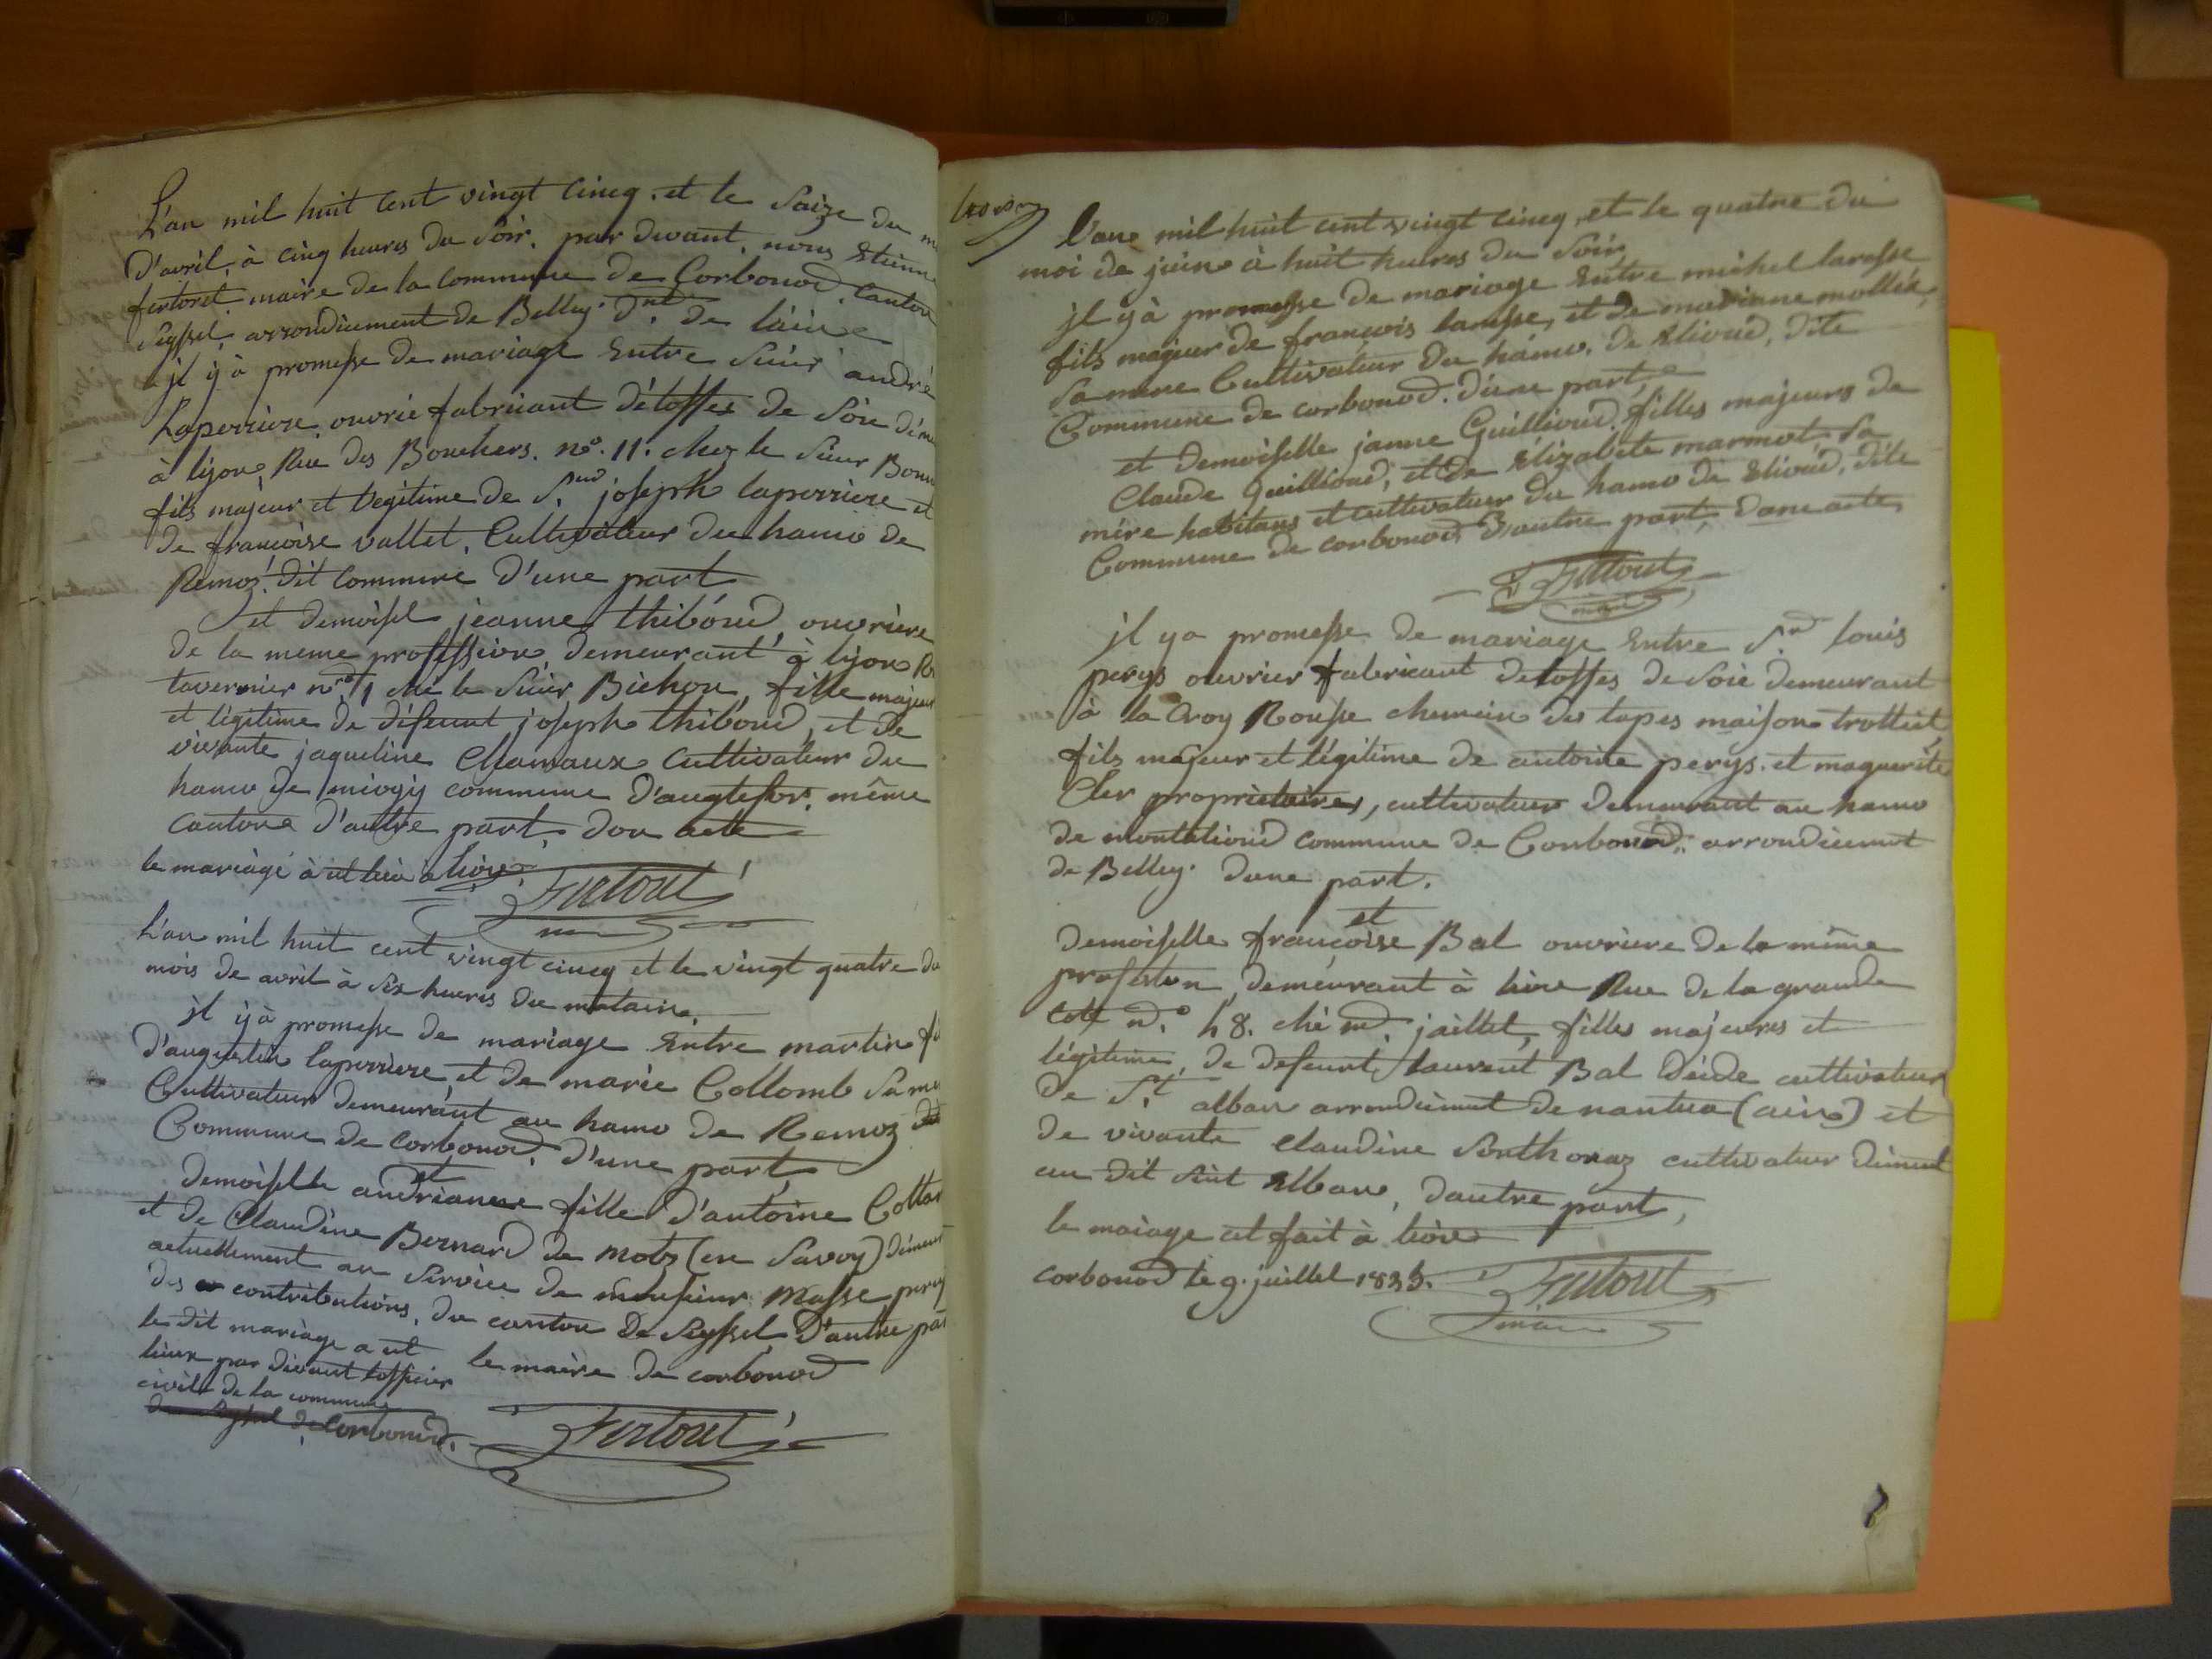 L'an mil huit cent vingt cincq. et le Saize du m
D'avril, à cinq heures du Soir. par devant, nous Etienne
fertoret maire de la commune de Corbonod. Canton
Seyssel, arrondicement de Belley. Dnt. de lain
il y à promesse de mariage Entre Sieur andré
Laperriere, ouvrié fabricant d'étoffes de Soie dem
à lyon, Rue des Bouchers. no. 11. chez le Sieur Bonn
fils majeur et legitime de joseph laperriere et
de francoise vallet, Cultivateur du hamo de
Remoz. dit commune D'une part
et demoisel jeanne thiboud ouvriere
de la meme profession demeurant à lyon R
tavernier no. 1 ché le Sieur Bichon, fille majeur
et légitime de défeunt joseph thiboud, et de
vivante jaqueline Chamaux Cultivateur du
hamo de miogy commune D'anglefor. même
Canton D'autre part. don acte
le mariage à ut lieu a lion
Fertoret
L'an mil huit cent vingt cincq et le vingt quatre du
mois de avril à Six heures du mataine.
il y à promesse de mariage Entre martin fi
d'augustin laperriere et de marie Collomb Sa me
Cultivateur demeurant au hamo de Remoz dit
Commune de Corbonod. D'une part
et
Demoiselle andrianne fille D'antoine Collon
et de Claudine Bernard de Motz (en Savoy) demeur
actuellement au Service de monsieur Masse percep
des contributions, du canton de Seyssel D'autre par
le dit mariage a ut
lieux par devant lofficier
civile de la commune
de Seyssel de Corbonod.
le maire de corbonod
Fertoret
L'ane mil huit cent vingt cincq, et le quatre du
moi de juin à huit heures du Soir
il y à promesse de mariage Entre michel larasse
fils majeur de francois larasse, et de marianne molliex
Sa mere Cultivateur du hamo. de Elioud, dite
Commune de corbonod. D'une part
et Demoiselle janne Guillioud. filles majeurs de
Claude Guillioud, et de Elizabete marmot Sa
mére habitans et cultivateur du hamo de Elioud, dite
Commune de corbonod D'autre part, Dont acte
Fertoret
maire
il y a promesse de mariage Entre Sr. louis
perys ouvrier fabricant detoffes de Soie demeurant
à la Croy Rousse chemein des tapes maison trolliet
fils majeur et légitime de antoine perys. et maguerite
Cler propriétaires, cultivateur demeurant au hamo
de montalioud commune de Corbonod. arrondicemet
de Belley. Dune part.
et
Demoiselle françoise Bal ouvriere de la même
profession, demeurant à lion Rue de la grande
cote no. 48. ché jaillet, filles majeures et
légitime, de defeunt laurent Bal déide cultivateur
de St. alban arrondicemet de nantua (ain) et
de vivante Claudine Sonthonaz cultivateur demeut
au dit Sint Alban, dautre part,
le maiage ut fait à lion
corbonod le 9. juillet 1825.
Fertoret
maire